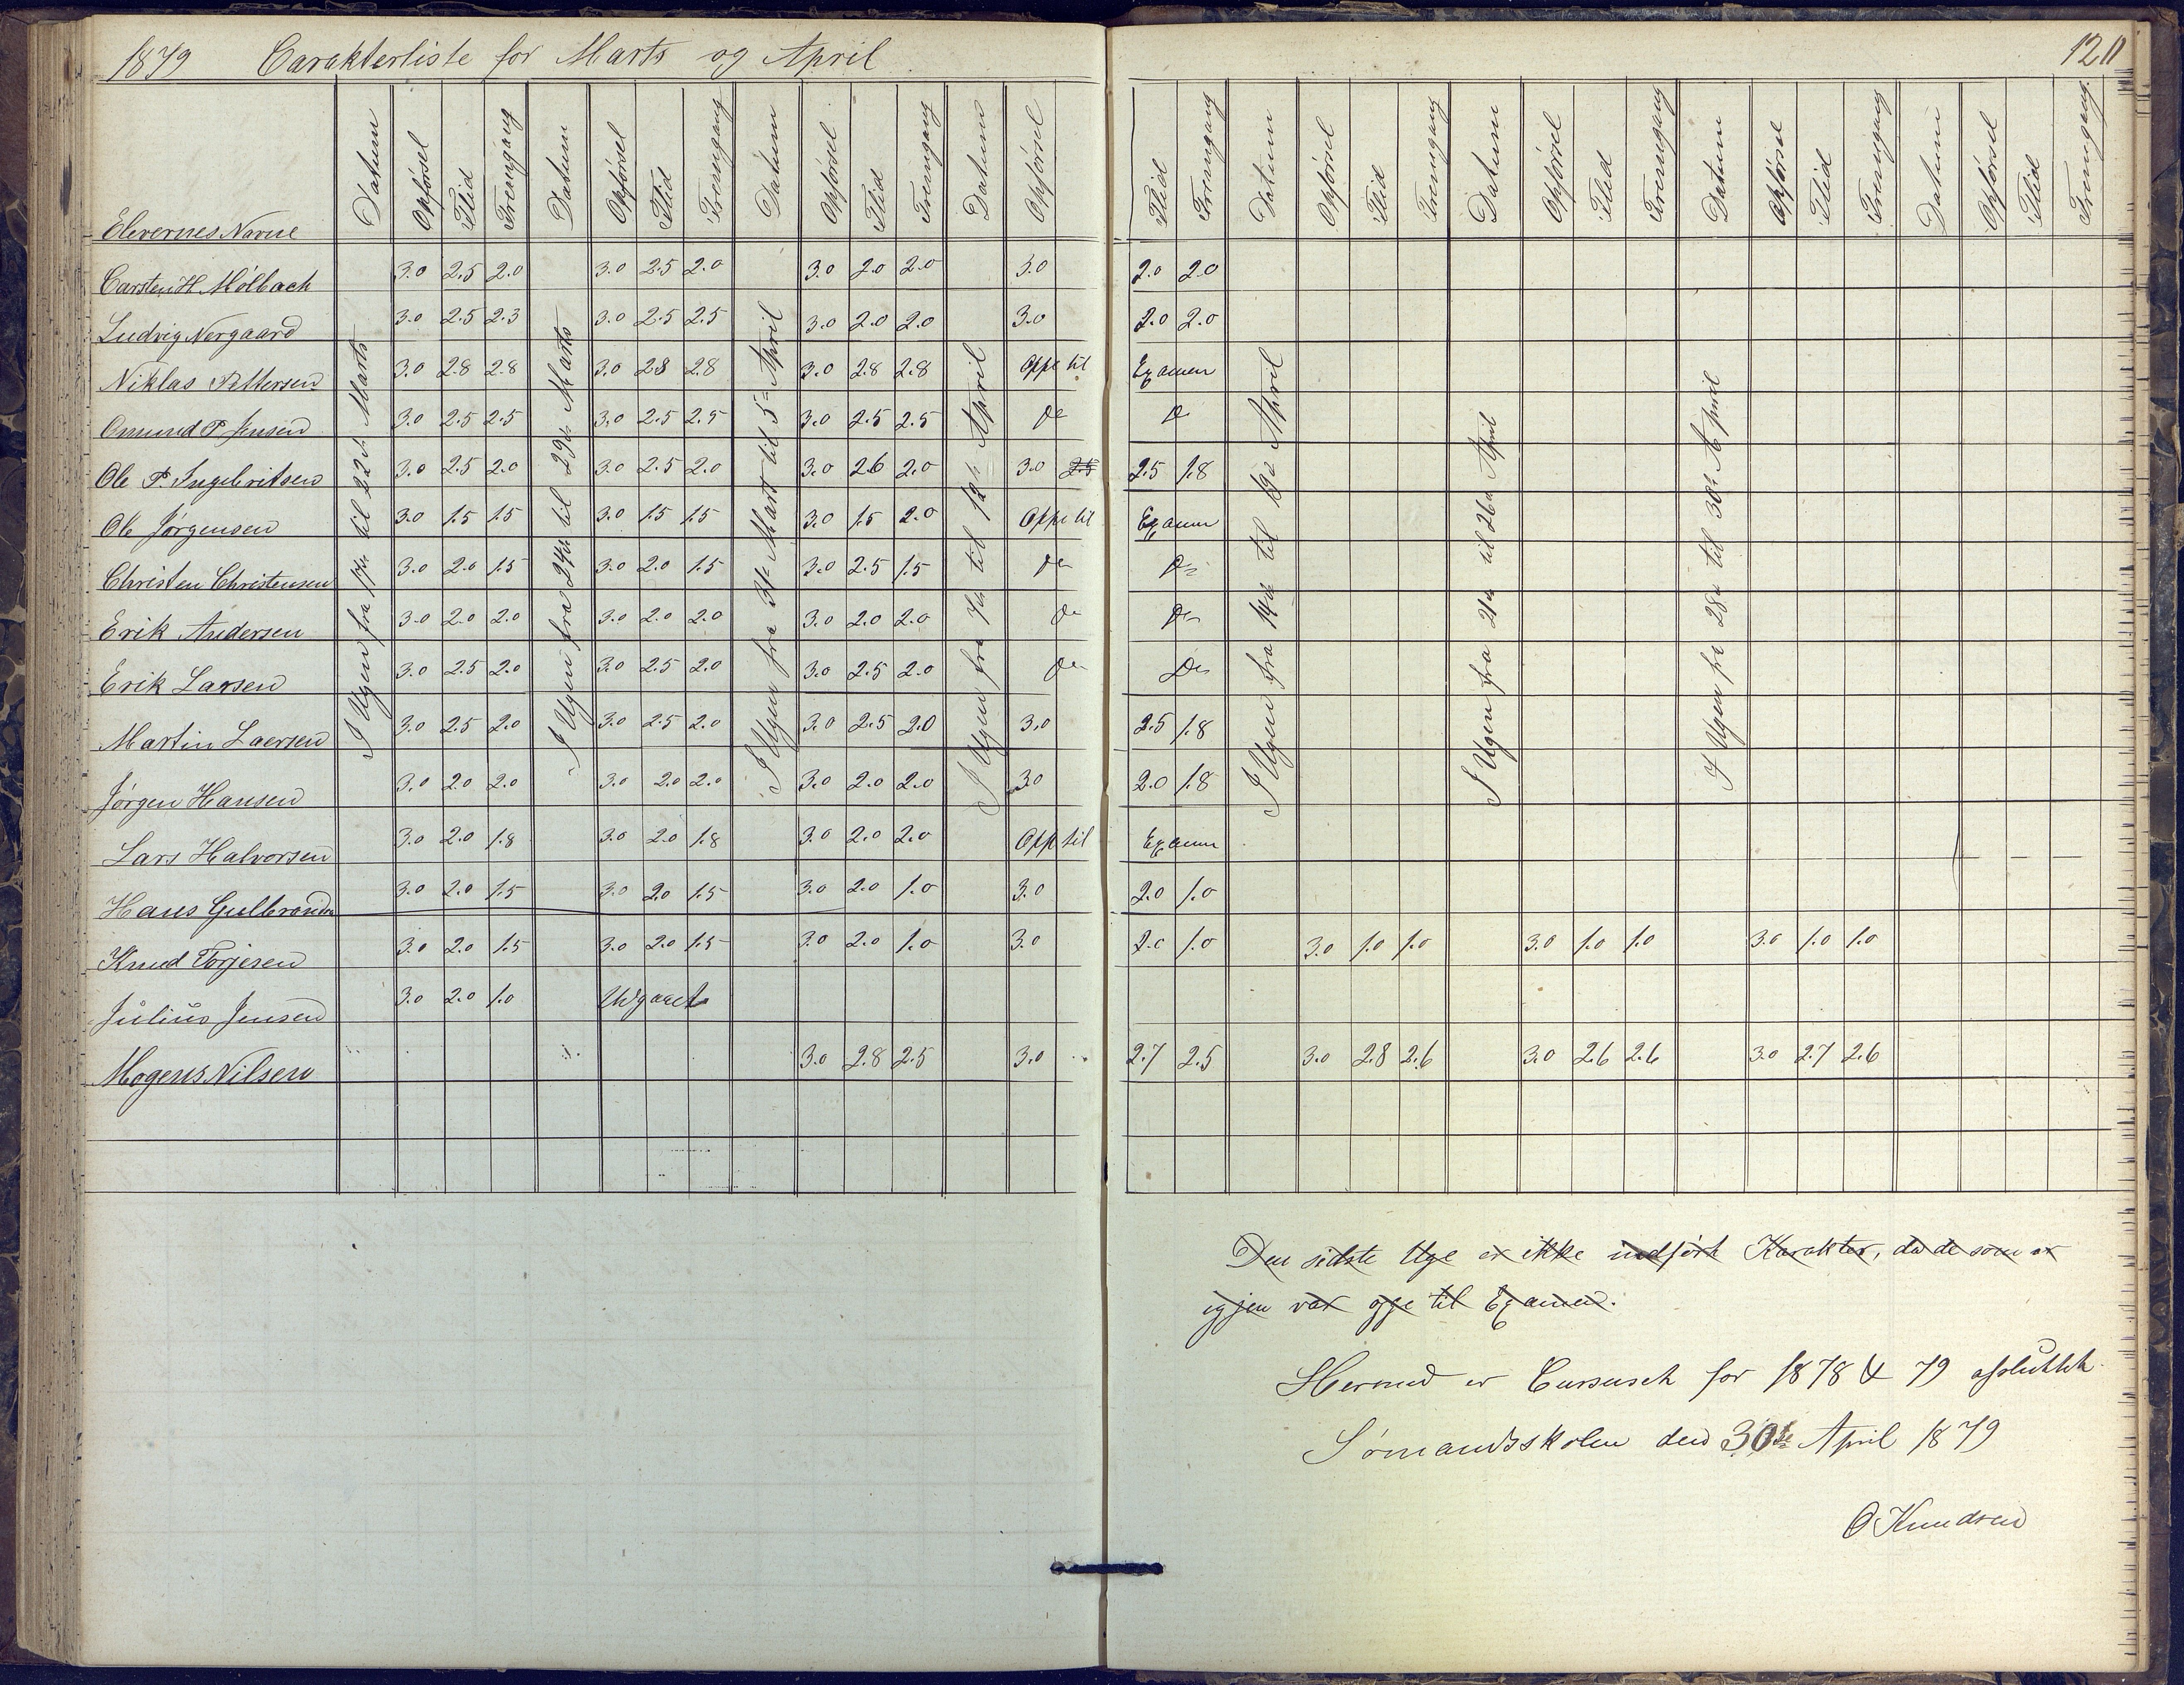 1879 Carakterliste for Marts og April
120
Elevernes Navne Datum Opförsel Flid Fremgang Datum Opförsel Flid Fremgang Datum Opförsel Flid Fremgang Datum Opförsel Flid Fremgang Datum Opförsel Flid Fremgang Datum Opförsel Flid Fremgang Datum Opförsel Flid Fremgang Datum Opförsel Flid Fremgang
I Ugen fra 17de til 22de Marts
I Ugen fra 24de til 29de Marts
I Ugen fra 31te Marts til 5te April
I Ugen fra 7de til 12te April
I Ugen fra 14de til 19de April
I Ugen fra 21de til 26de April
I Ugen fra 28de til 30te April
Carsten H. Mölbach 3.0 2.5 2.0 3.0 2.5 2.0 3.0 2.0 2.0 3.0 2.0 2.0
Ludvig Nergaard 3.0 2.5 2.3 3.0 2.5 2.5 3.0 2.0 2.0 3.0 2.0 2.0
Niklas Pettersen 3.0 2.8 2.8 3.0 2.8 2.8 3.0 2.8 2.8 Oppe til Examen
Omund P Jensen 3.0 2.5 2.5 3.0 2.5 2.5 3.0 2.5 2.5 Do Do
Ole P. Ingebritsen 3.0 2.5 2.0 3.0 2.5 2.0 3.0 2.6 2.0 3.0 2.5 2.5 1.8
Ole Jørgensen 3.0 1.5 1.5 3.0 1.5 1.5 3.0 1.5 2.0 Oppe til Examen
Christen Christensen 3.0 2.0 1.5 3.0 2.0 1.5 3.0 2.5 1.5 Do Do
Erik Andersen 3.0 2.0 2.0 3.0 2.0 2.0 3.0 2.0 2.0 Do Do
Erik Larsen 3.0 2.5 2.0 3.0 2.5 2.0 3.0 2.5 2.0 Do Do
Martin Laersen 3.0 2.5 2.0 3.0 2.5 2.0 3.0 2.5 2.0 3.0 2.5 1.8
Jørgen Hansen 3.0 2.0 2.0 3.0 2.0 2.0 3.0 2.0 2.0 3.0 2.0 1.8
Lars Halvorsen 3.0 2.0 1.8 3.0 2.0 1.8 3.0 2.0 2.0 Opp til Examen
Hans Gulbrandsen 3.0 2.0 1.5 3.0 2.0 1.5 3.0 2.0 1.0 3.0 2.0 1.0
Knud Torjesen 3.0 2.0 1.5 3.0 2.0 1.5 3.0 2.0 1.0 3.0 2.0 1.0 3.0 1.0 1.0 3.0 1.0 1.0 3.0 1.0 1.0
Julius Jensen 3.0 2.0 1.0 Udgaaet
Mogens Nilsen 3.0 2.8 2.5 3.0 2.7 2.5 3.0 2.8 2.6 3.0 2.6 2.6 3.0 2.7 2.6
Den sidste Uge er ikke indført Karakter, da de som er
igjen var oppe til Examen.
Hermed er Cursuset for 1878 & 79 afsluttet
Sømandsskolen den 30te April 1879
O Knudsen